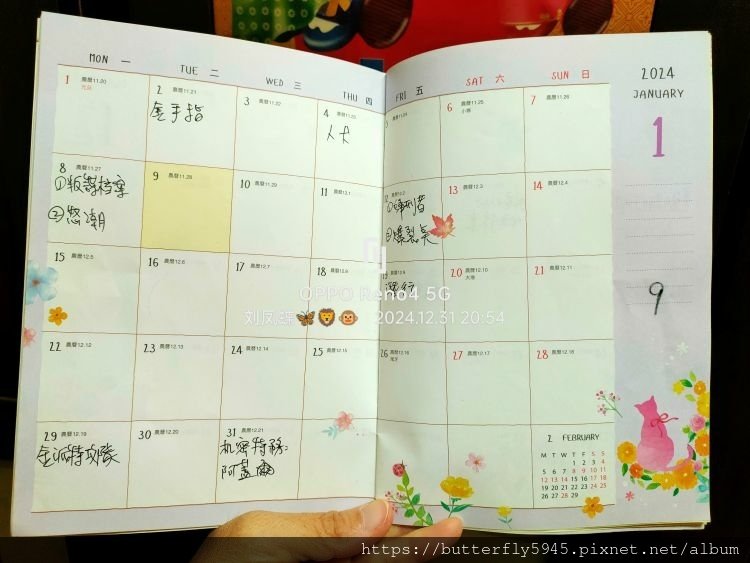 MON 一 TUE 二 WED 三 THU 四 FRI 五 SAT 六 SUN 日
2024
JANUARY
1
1 農曆11.20
元旦
2 農曆11.21
金手指
3 農曆11.22
4 農曆11.23
人犬
5 農曆11.24
6 農曆11.25
小寒
7 農曆11.26
8 農曆11.27
①叛諜档案
②怒潮
9 農曆11.28
10 農曆11.29
11 農曆12.1
12 農曆12.2
①犧利者
②爆裂点
13 農曆12.3
14 農曆12.4
15 農曆12.5
16 農曆12.6
17 農曆12.7
18 農曆12.8
19 農曆12.9
潛行
20 農曆12.10
大寒
21 農曆12.11
22 農曆12.12
23 農曆12.13
24 農曆12.14
25 農曆12.15
26 農曆12.16
尾牙
27 農曆12.17
28 農曆12.18
29 農曆12.19
金派特攻隊
30 農曆12.20
31 農曆12.21
机密特務:
阿蓋
9
2 FEBRUARY
M T W T F S S
1 2 3 4
5 6 7 8 9 10 11
12 13 14 15 16 17 18
19 20 21 22 23 24 25
26 27 28 29
OPPO Reno4 5G
刘凤蝶🦋🦁🐵 2024.12.31 20:54
https://butterfly5945.pixnet.net/album